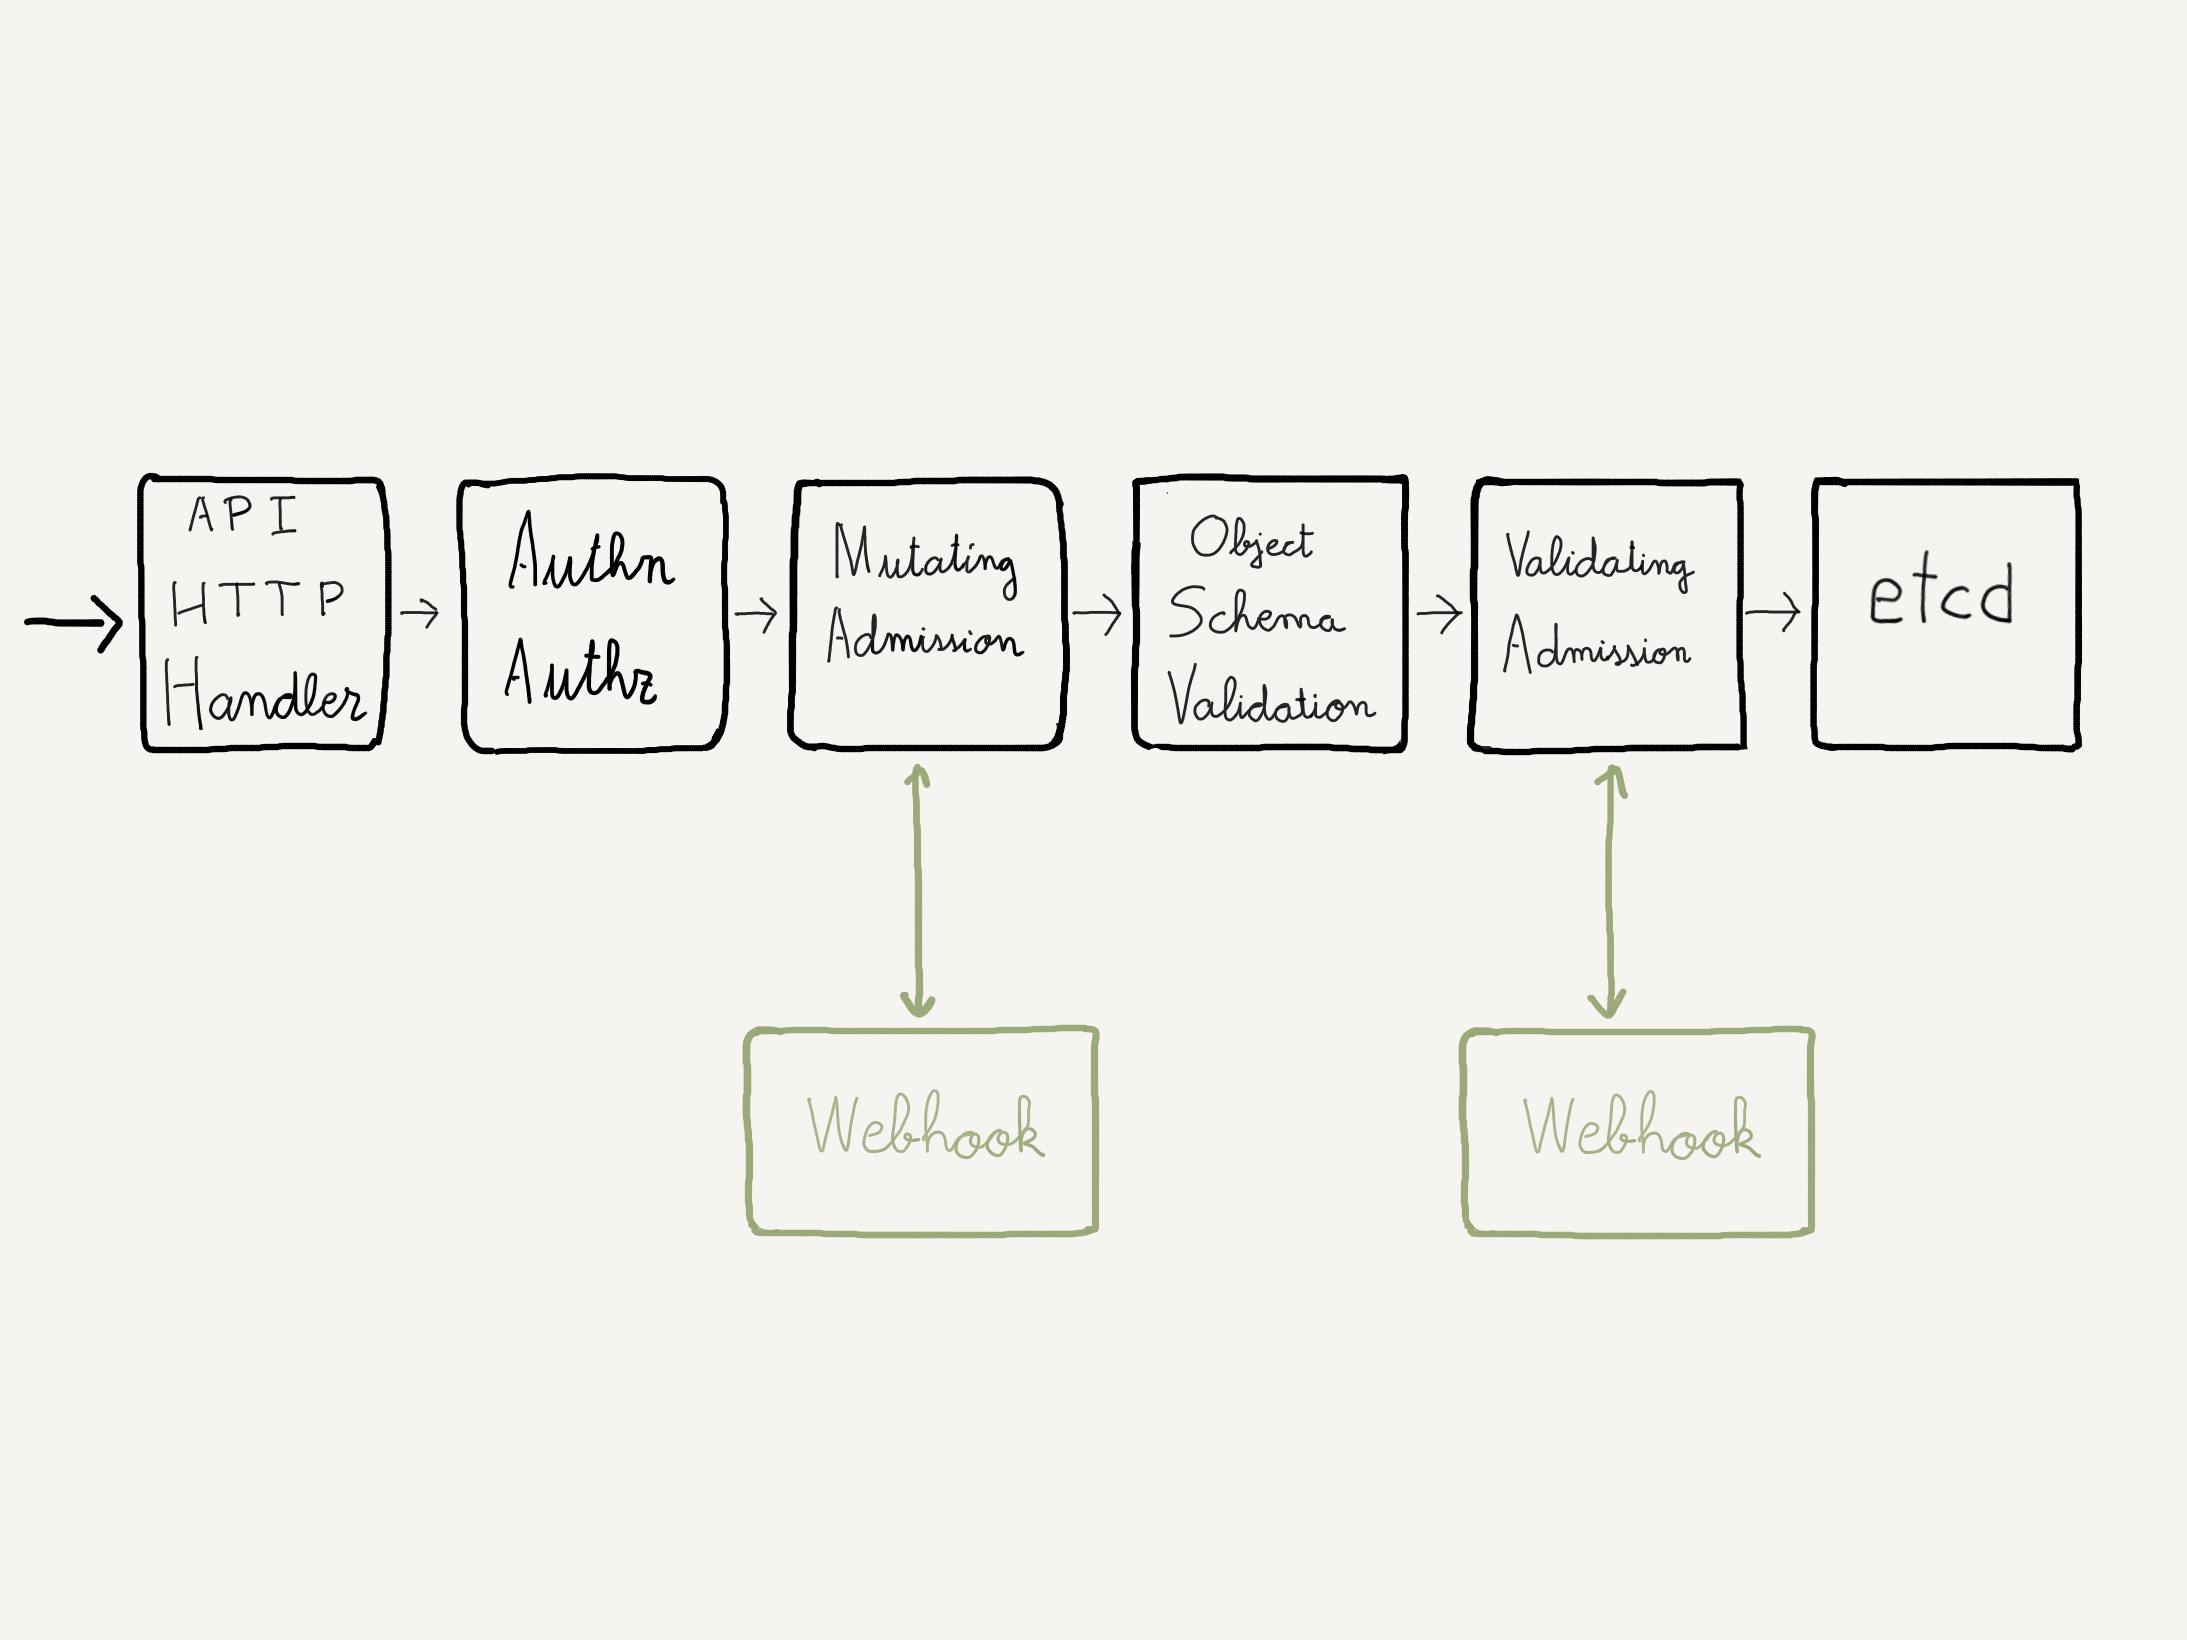 API
HTTP
Handler
Authn
Authz
Mutating
Admission
Object
Schema
Validation
Validating
Admission
etcd
Webhook
Webhook